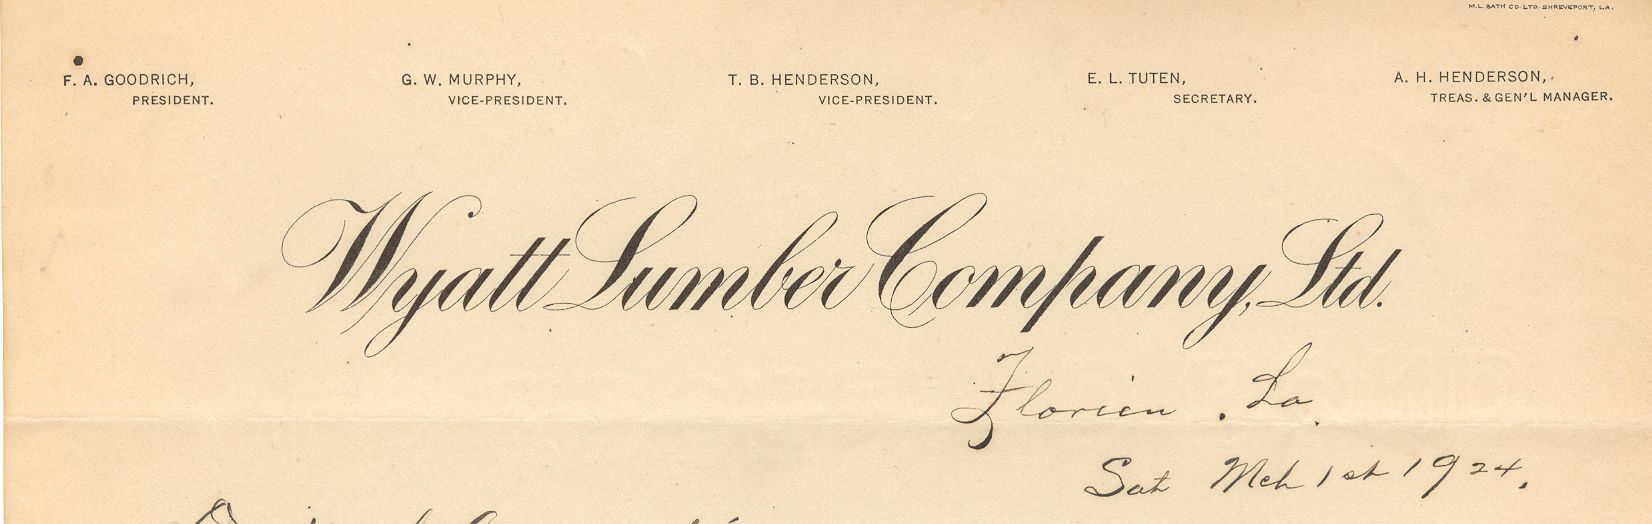 M.L. BATH CO. LTD. SHREVEPORT, LA.
F. A. GOODRICH, G. W. MURPHY, T. B. HENDERSON, E. L. TUTEN, A. H. HENDERSON,
PRESIDENT. VICE-PRESIDENT. VICE-PRESIDENT. SECRETARY. TREAS. & GEN'L MANAGER.
Wyatt Lumber Company, Ltd.
Florien. La.
Sat Mch 1st 1924.